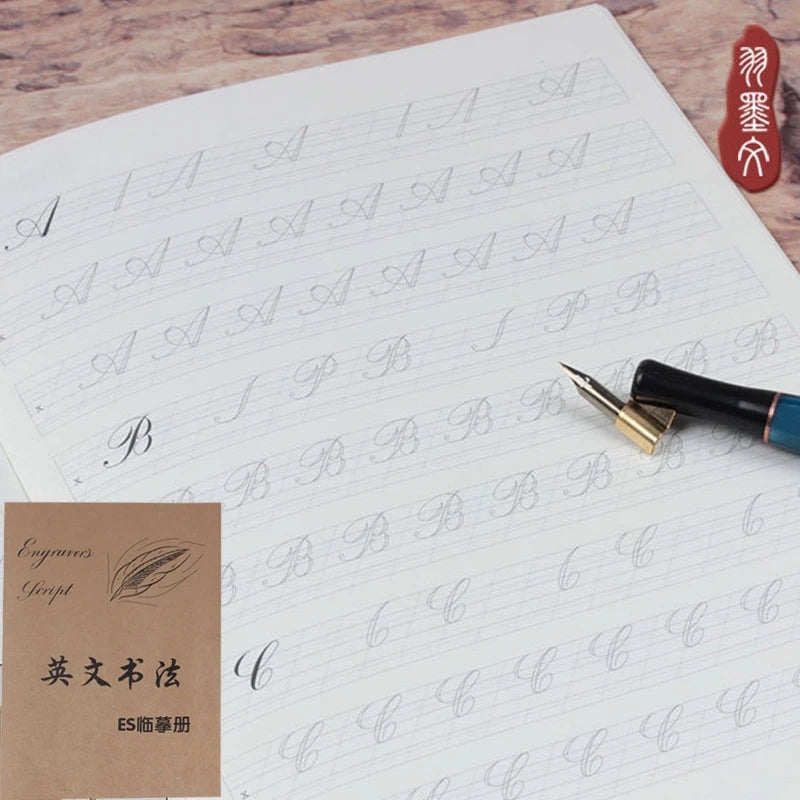 羽墨文
A A A
A A A A A A A A
A A A A A A A A
B P B P B
B B B B B B B B B
B B B B B B B B
C C C
C C C C C C C
C C C C C
Engravers
Script
英文书法
ES临摹册